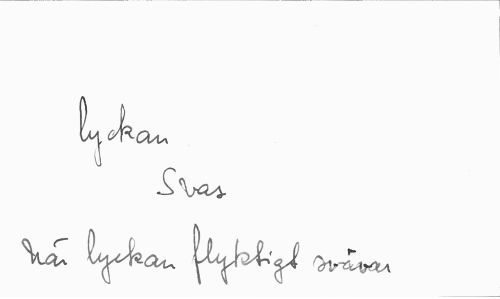 lyckan
Svas
När lyckan flyktigt svävar